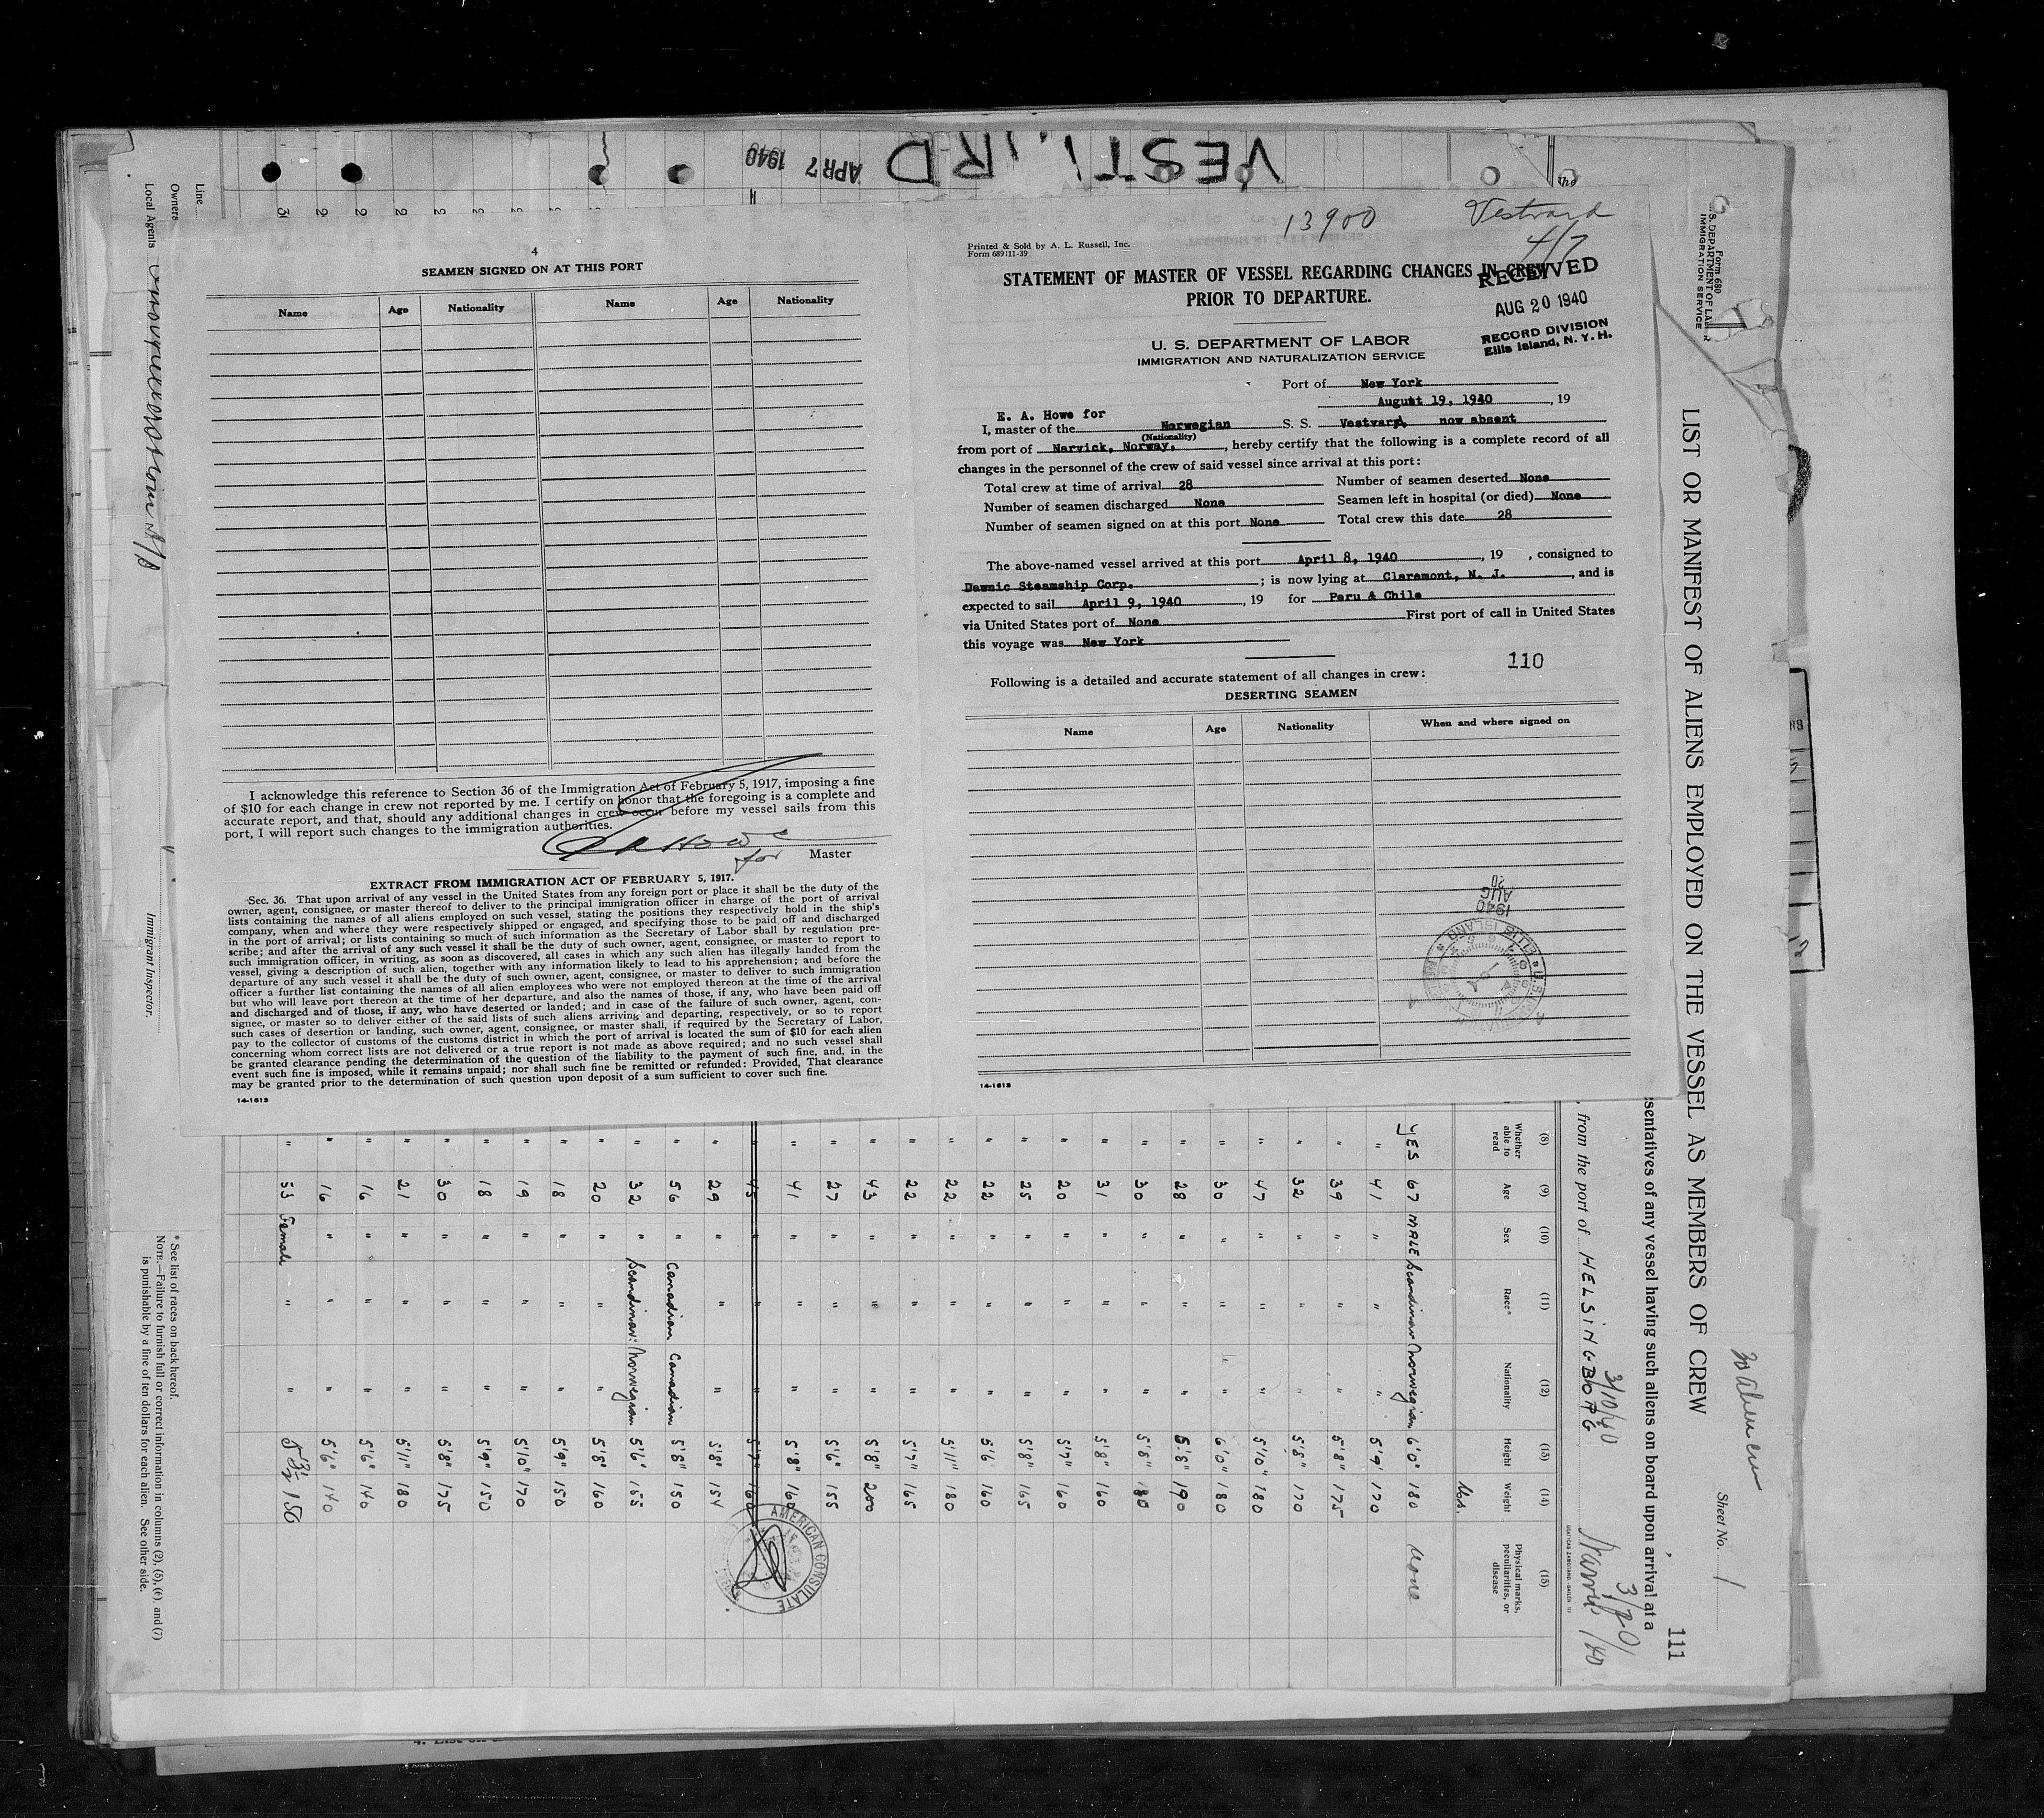 VEST
RD
APR 7 1940
13900
Vestvard
4/7
Printed & Sold by A. L. Russell, Inc.
Form 689 11-39
STATEMENT OF MASTER OF VESSEL REGARDING CHANGES IN CREW
PRIOR TO DEPARTURE.
RECEIVED
AUG 20 1940
RECORD DIVISION
Ellis Island, N. Y. H.
U. S. DEPARTMENT OF LABOR
IMMIGRATION AND NATURALIZATION SERVICE
Port of New York
August 19, 1940, 19
E. A. Howe for
I, master of the Norwegian S. S. Vestvard, now absent
(Nationality)
from port of Narvick, Norway, , hereby certify that the following is a complete record of all
changes in the personnel of the crew of said vessel since arrival at this port:
Total crew at time of arrival 28 Number of seamen deserted None
Number of seamen discharged None Seamen left in hospital (or died) None
Number of seamen signed on at this port None Total crew this date 28
The above-named vessel arrived at this port April 8, 1940, 19 , consigned to
Dawnic Steamship Corp. ; is now lying at Claremont, N. J. , and is
expected to sail April 9, 1940, 19 for Peru & Chile
via United States port of None First port of call in United States
this voyage was New York
110
Following is a detailed and accurate statement of all changes in crew:
DESERTING SEAMEN
Name Age Nationality When and where signed on
1940
AUG
20
ELLIS ISLAND
14-1613
4
SEAMEN SIGNED ON AT THIS PORT
Name Age Nationality Name Age Nationality
I acknowledge this reference to Section 36 of the Immigration Act of February 5, 1917, imposing a fine
of $10 for each change in crew not reported by me. I certify on honor that the foregoing is a complete and
accurate report, and that, should any additional changes in crew occur before my vessel sails from this
port, I will report such changes to the immigration authorities.
E A Howe
for Master
EXTRACT FROM IMMIGRATION ACT OF FEBRUARY 5, 1917.
Sec. 36. That upon arrival of any vessel in the United States from any foreign port or place it shall be the duty of the
owner, agent, consignee, or master thereof to deliver to the principal immigration officer in charge of the port of arrival
lists containing the names of all aliens employed on such vessel, stating the positions they respectively hold in the ship's
company, when and where they were respectively shipped or engaged, and specifying those to be paid off and discharged
in the port of arrival; or lists containing so much of such information as the Secretary of Labor shall by regulation pre-
scribe; and after the arrival of any such vessel it shall be the duty of such owner, agent, consignee, or master to report to
such immigration officer, in writing, as soon as discovered, all cases in which any such alien has illegally landed from the
vessel, giving a description of such alien, together with any information likely to lead to his apprehension; and before the
departure of any such vessel it shall be the duty of such owner, agent, consignee, or master to deliver to such immigration
officer a further list containing the names of all alien employees who were not employed thereon at the time of the arrival
but who will leave port thereon at the time of her departure, and also the names of those, if any, who have been paid off
and discharged and of those, if any, who have deserted or landed; and in case of the failure of such owner, agent, con-
signee, or master so to deliver either of the said lists of such aliens arriving and departing, respectively, or so to report
such cases of desertion or landing, such owner, agent, consignee, or master shall, if required by the Secretary of Labor,
pay to the collector of customs of the customs district in which the port of arrival is located the sum of $10 for each alien
concerning whom correct lists are not delivered or a true report is not made as above required; and no such vessel shall
be granted clearance pending the determination of the question of the liability to the payment of such fine, and, in the
event such fine is imposed, while it remains unpaid; nor shall such fine be remitted or refunded: Provided, That clearance
may be granted prior to the determination of such question upon deposit of a sum sufficient to cover such fine.
14-1613
Form 680
U. S. DEPARTMENT OF LABOR
IMMIGRATION SERVICE
Sheet No. 1
111
LIST OR MANIFEST OF ALIENS EMPLOYED ON THE VESSEL AS MEMBERS OF CREW
sentatives of any vessel having such aliens on board upon arrival at a
from the port of HELSINGBORG 3/10/40 Narvik 3/20/40
(8) (9) (10) (11) (12) (13) (14) (15)
Whether able to read Age Sex Race* Nationality Height Weight Physical marks, peculiarities, or disease
lbs.
YES 67 MALE Scandinav Norwegian 6'0" 180 None
" 41 " " " 5'9" 170
" 39 " " " 5'8" 175
" 32 " " " 5'8" 170
" 47 " " " 5'10" 180
" 30 " " " 6'0" 180
" 28 " " " 5'8" 190
" 30 " " " 5'8" 180
" 31 " " " 5'8" 160
" 20 " " " 5'7" 160
" 25 " " " 5'8" 165
" 22 " " " 5'6 160
" 22 " " " 5'11" 180
" 22 " " " 5'7" 165
" 43 " " " 5'8" 200
" 27 " " " 5'6" 155
" 41 " " " 5'8" 160
" 45 " " " 5'7" 160
" 29 " " " 5'8" 154
" 56 " Canadian Canadian 5'8" 150
" 32 " Scandinav: Norwegian 5'6" 155
" 20 " " " 5'8" 160
" 18 " " " 5'9" 150
" 19 " " " 5'10" 170
" 18 " " " 5'9" 150
" 30 " " " 5'8" 175
" 21 " " " 5'11" 180
" 16 " " " 5'6" 140
" 16 " " " 5'6" 140
" 53 Female " " 5'3½ 150
AMERICAN CONSULATE
Line
Owners
Local Agents
Immigrant Inspector.
* See list of races on back hereof.
NOTE.—Failure to furnish full or correct information in columns (2), (5), (6), and (7)
is punishable by a fine of ten dollars for each alien. See other side.